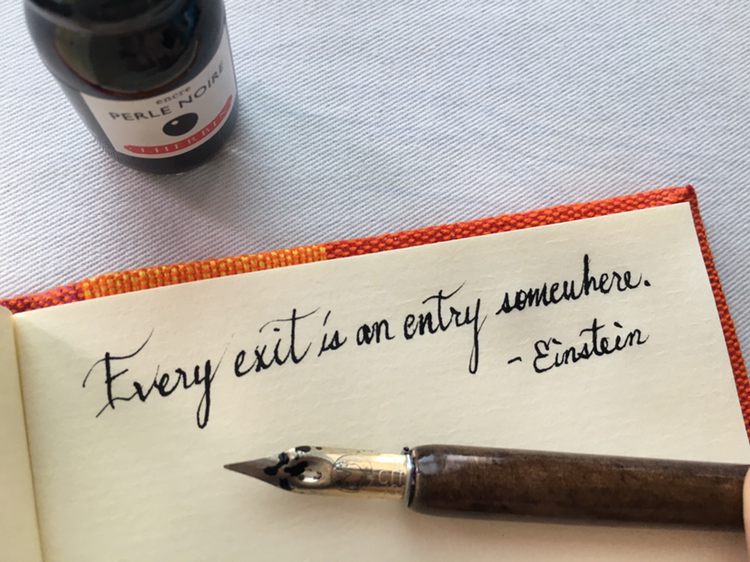 encre
PERLE NOIRE
J. HERBIN
Every exit is an entry somewhere.
- Einstein